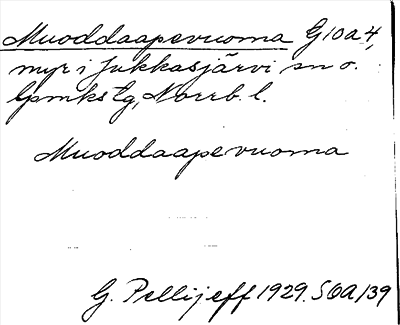 Muoddaapevuoma G10a4,
myr i Jukkasjärvi sn o.
lpmks lg, Norrb. l.
Muoddaapevuoma
G. Pellijeff 1929. SOA/39